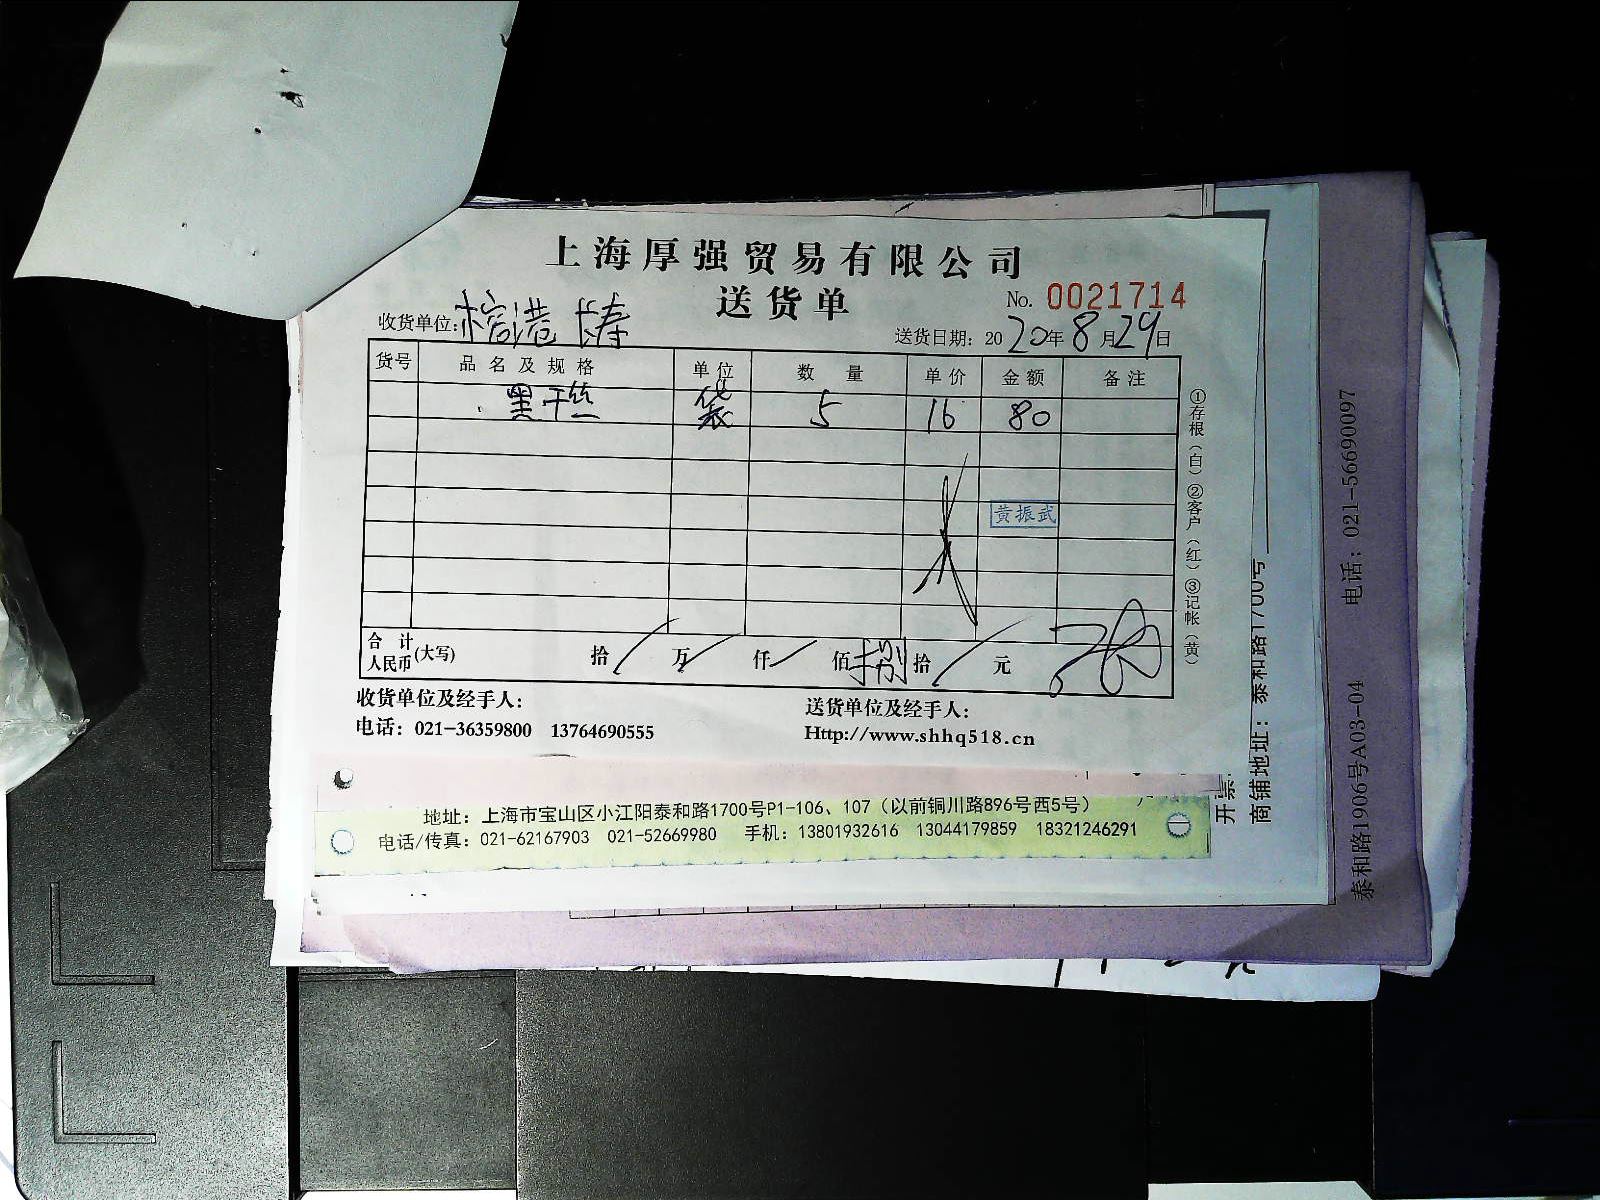 上海厚强贸易有限公司
送货单
No. 0021714
收货单位: 榕港 长寿
送货日期: 2020年8月29日
货号 品名及规格 单位 数量 单价 金额 备注
黑干丝 袋 5 16 80
黄振武
合计人民币(大写) 拾 万 仟 佰 捌拾 元
收货单位及经手人:
送货单位及经手人:
电话: 021-36359800 13764690555
Http://www.shhq518.cn
①存根(白)②客户(红)③记帐(黄)
地址: 上海市宝山区小江阳泰和路1700号P1-106、107 (以前铜川路896号西5号)
电话/传真: 021-62167903 021-52669980 手机: 13801932616 13044179859 18321246291
开票
商铺地址: 泰和路1700号
泰和路1906号A03-04 电话: 021-56690097